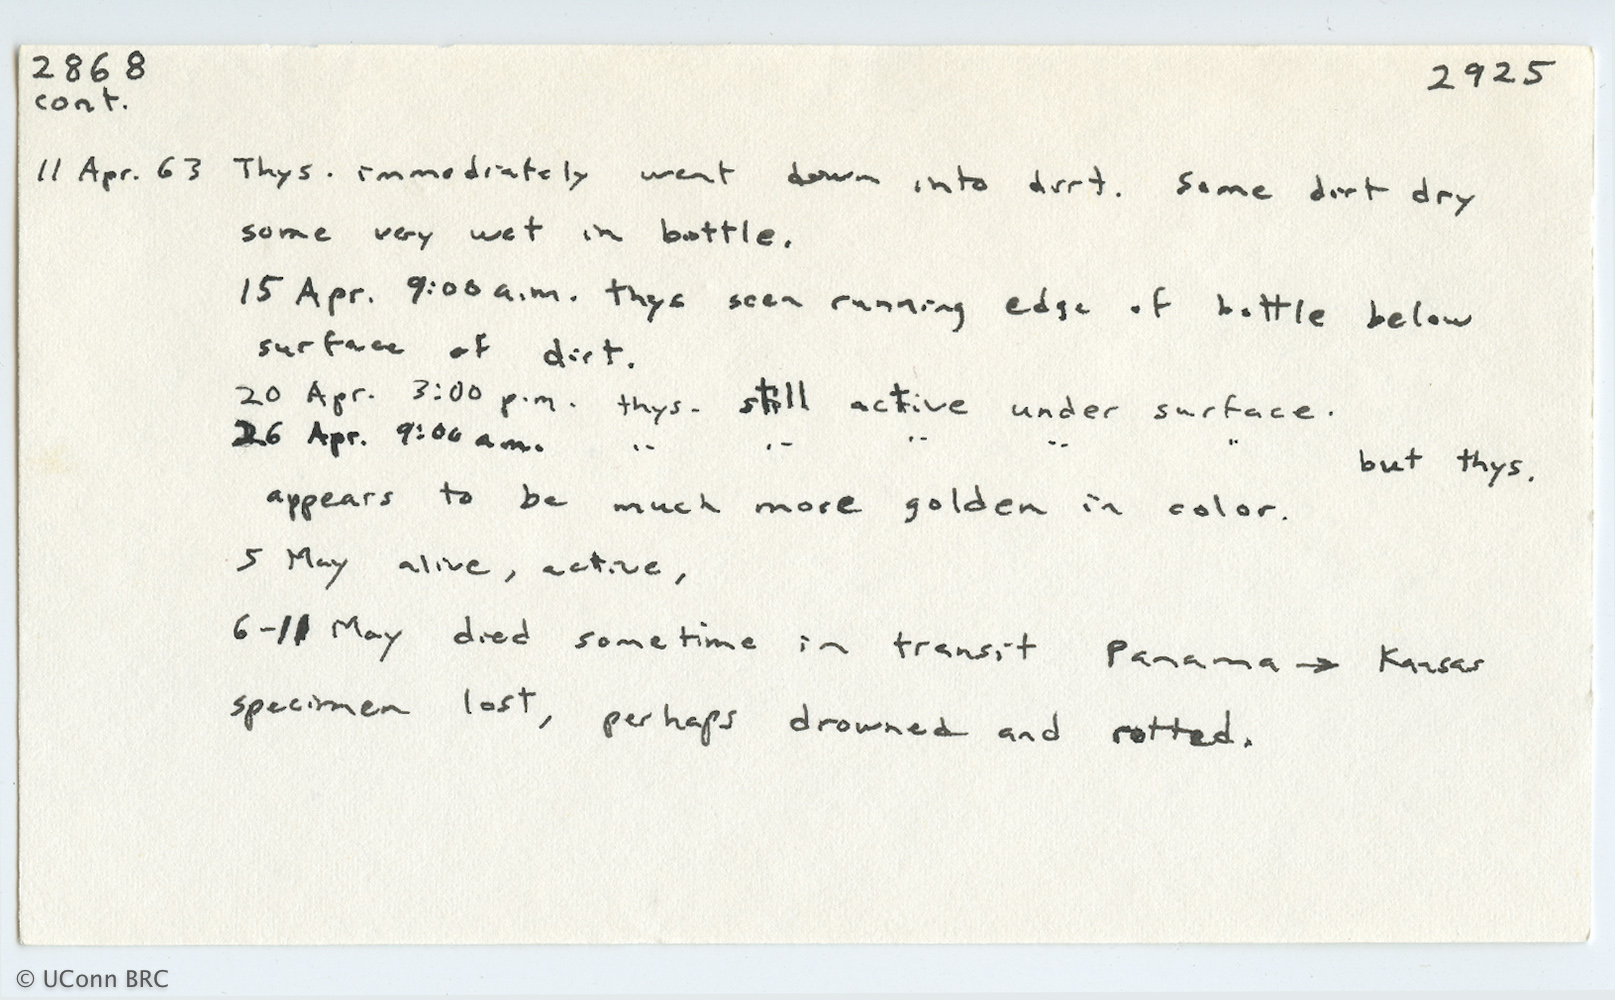 2868 2925
cont.
11 Apr. 63 Thys. immediately went down into dirt. Some dirt dry
some very wet in bottle.
15 Apr. 9:00 a.m. thys seen running edge of bottle below
surface of dirt.
20 Apr. 3:00 p.m. thys. still active under surface.
26 Apr. 9:00 am. " " " " " but thys.
appears to be much more golden in color.
5 May alive, active,
6-11 May died sometime in transit Panama → Kansas
specimen lost, perhaps drowned and rotted.
© UConn BRC